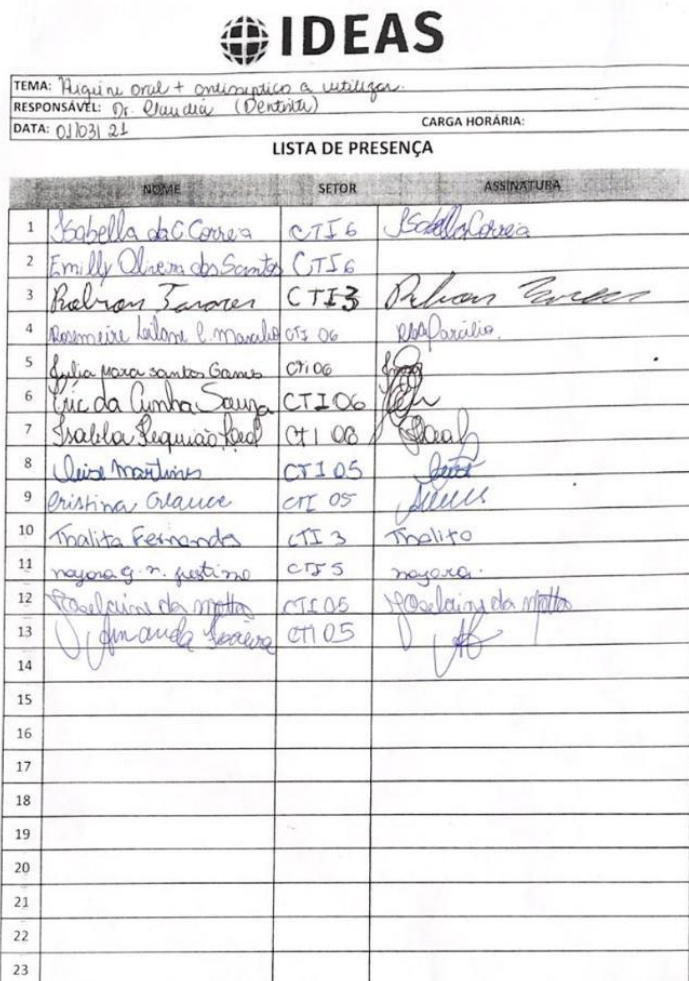 IDEAS
TEMA: Higiene oral + antisseptico a utilizar.
RESPONSÁVEL: Dr. Claudia (Dentista)
DATA: 01/03/21 CARGA HORÁRIA:
LISTA DE PRESENÇA
NOME SETOR ASSINATURA
1 Isabella da C Correia CTI 6 Isabella Correia
2 Emilly Oliveira dos Santos CTI 6
3 Robson Tavares CTI3 Robson Tavares
4 Rosemeire CTI 06
5 Julia Mara Santos Gomes CTI 06
6 Eric da Cunha Souza CTI 06
7 Isabela Requião CTI 08
8 Cleise Martines CTI 05
9 Cristina CTI 05
10 Thalita Fernandes CTI 3 Thalita
11 nayara g. n. justino CTI 5 nayara.
12 Joselaine da Motta CTI 05 Joselaine da Motta
13 Amanda CTI 05
14
15
16
17
18
19
20
21
22
23